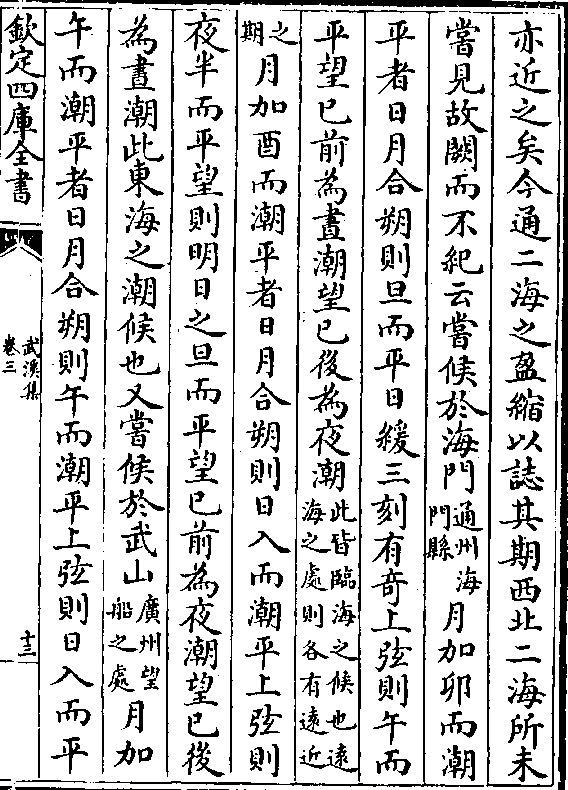 亦近之矣今通二海之盈縮以誌其期西北二海所未
嘗見故闕而不紀云嘗候於海門通州海門縣月加卯而潮
平者日月合朔則旦而平日緩三刻有奇上弦則午而
平望已前為晝潮望已後為夜潮此皆臨海之候也遠海之處則各有遠近
之期月加酉而潮平者日月合朔則日入而潮平上弦則
夜半而平望則明日之旦而平望已前為夜潮望已後
為晝潮此東海之潮候也又嘗候於武山廣州望船之處月加
午而潮平者日月合朔則午而潮平上弦則日入而平
欽定四庫全書
武溪集
卷三
十三